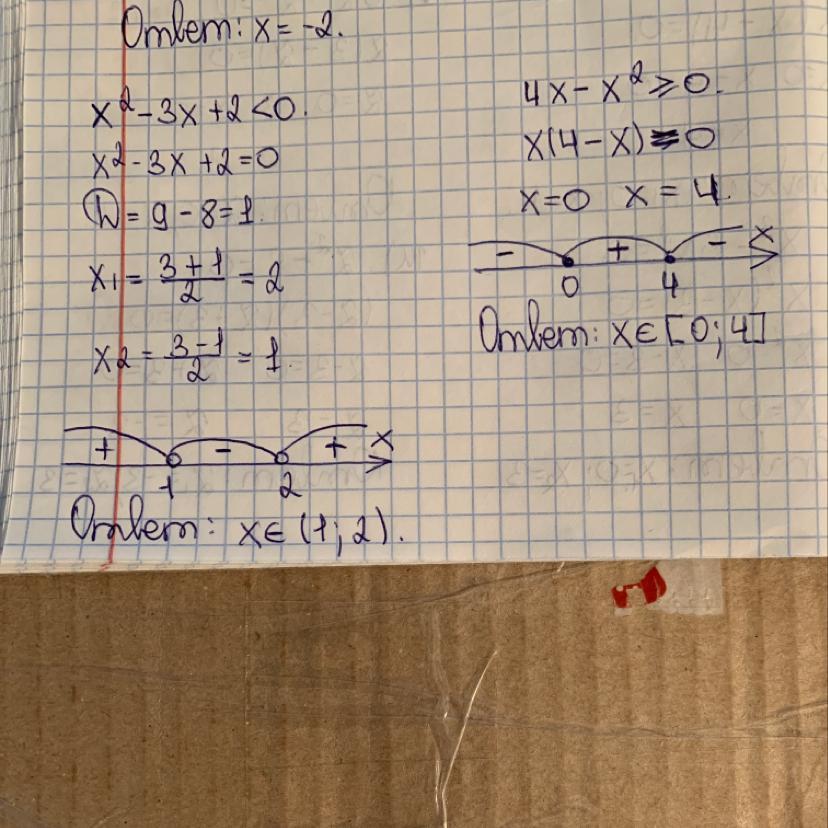 Ответ: x = -2.
x² - 3x + 2 < 0.
x² - 3x + 2 = 0
D = 9 - 8 = 1.
x1 = (3 + 1)/2 = 2
x2 = (3 - 1)/2 = 1.
+ - + x
1 2
Ответ: x ∈ (1; 2).
4x - x² ⩾ 0.
x(4 - x) = 0
x = 0 x = 4.
- + - x
0 4
Ответ: x ∈ [0; 4]